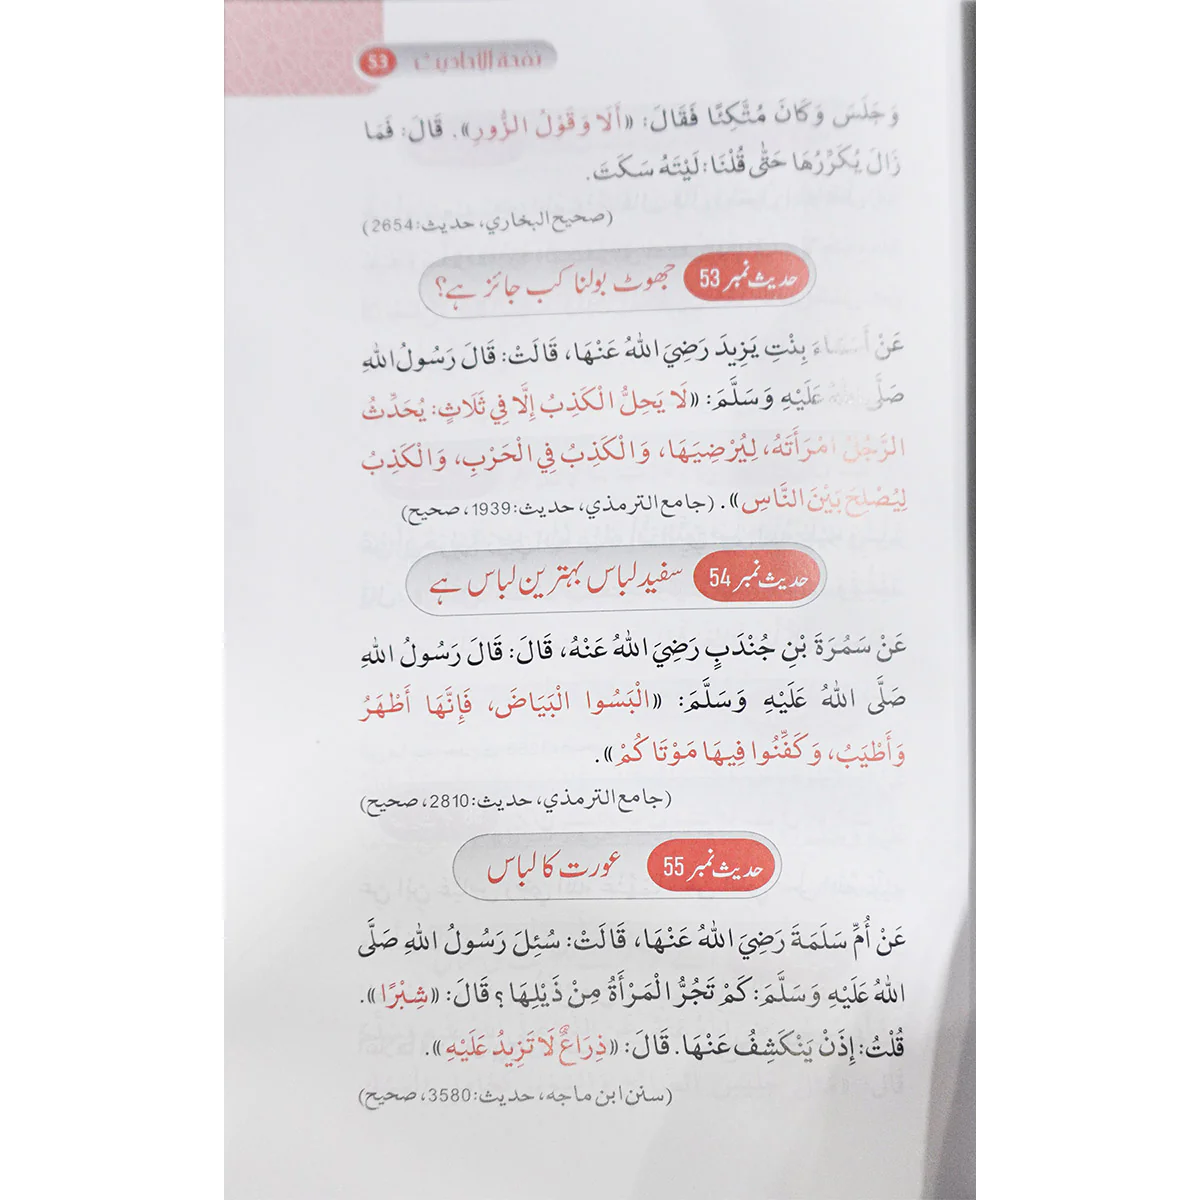 نفحة الاحادیث 53
وَجَلَسَ وَكَانَ مُتَّكِئًا فَقَالَ: «أَلَا وَقَوْلُ الزُّورِ». قَالَ: فَمَا
زَالَ يُكَرِّرُهَا حَتَّى قُلْنَا: لَيْتَهُ سَكَتَ.
(صحيح البخاري، حديث: 2654)
حدیث نمبر 53 جھوٹ بولنا کب جائز ہے؟
عَنْ أَسْمَاءَ بِنْتِ يَزِيدَ رَضِيَ اللهُ عَنْهَا، قَالَتْ: قَالَ رَسُولُ اللهِ
صَلَّى اللهُ عَلَيْهِ وَسَلَّمَ: «لَا يَحِلُّ الْكَذِبُ إِلَّا فِي ثَلَاثٍ: يُحَدِّثُ
الرَّجُلُ امْرَأَتَهُ، لِيُرْضِيَهَا، وَالْكَذِبُ فِي الْحَرْبِ، وَالْكَذِبُ
لِيُصْلِحَ بَيْنَ النَّاسِ». (جامع الترمذي، حديث: 1939، صحيح)
حدیث نمبر 54 سفید لباس بہترین لباس ہے
عَنْ سَمُرَةَ بْنِ جُنْدَبٍ رَضِيَ اللهُ عَنْهُ، قَالَ: قَالَ رَسُولُ اللهِ
صَلَّى اللهُ عَلَيْهِ وَسَلَّمَ: «الْبَسُوا الْبَيَاضَ، فَإِنَّهَا أَطْهَرُ
وَأَطْيَبُ، وَكَفِّنُوا فِيهَا مَوْتَاكُمْ».
(جامع الترمذي، حديث: 2810، صحيح)
حدیث نمبر 55 عورت کا لباس
عَنْ أُمِّ سَلَمَةَ رَضِيَ اللهُ عَنْهَا، قَالَتْ: سُئِلَ رَسُولُ اللهِ صَلَّى
اللهُ عَلَيْهِ وَسَلَّمَ: كَمْ تَجُرُّ الْمَرْأَةُ مِنْ ذَيْلِهَا؟ قَالَ: «شِبْرًا».
قُلْتُ: إِذَنْ يَنْكَشِفُ عَنْهَا. قَالَ: «ذِرَاعٌ لَا تَزِيدُ عَلَيْهِ».
(سنن ابن ماجه، حديث: 3580، صحيح)